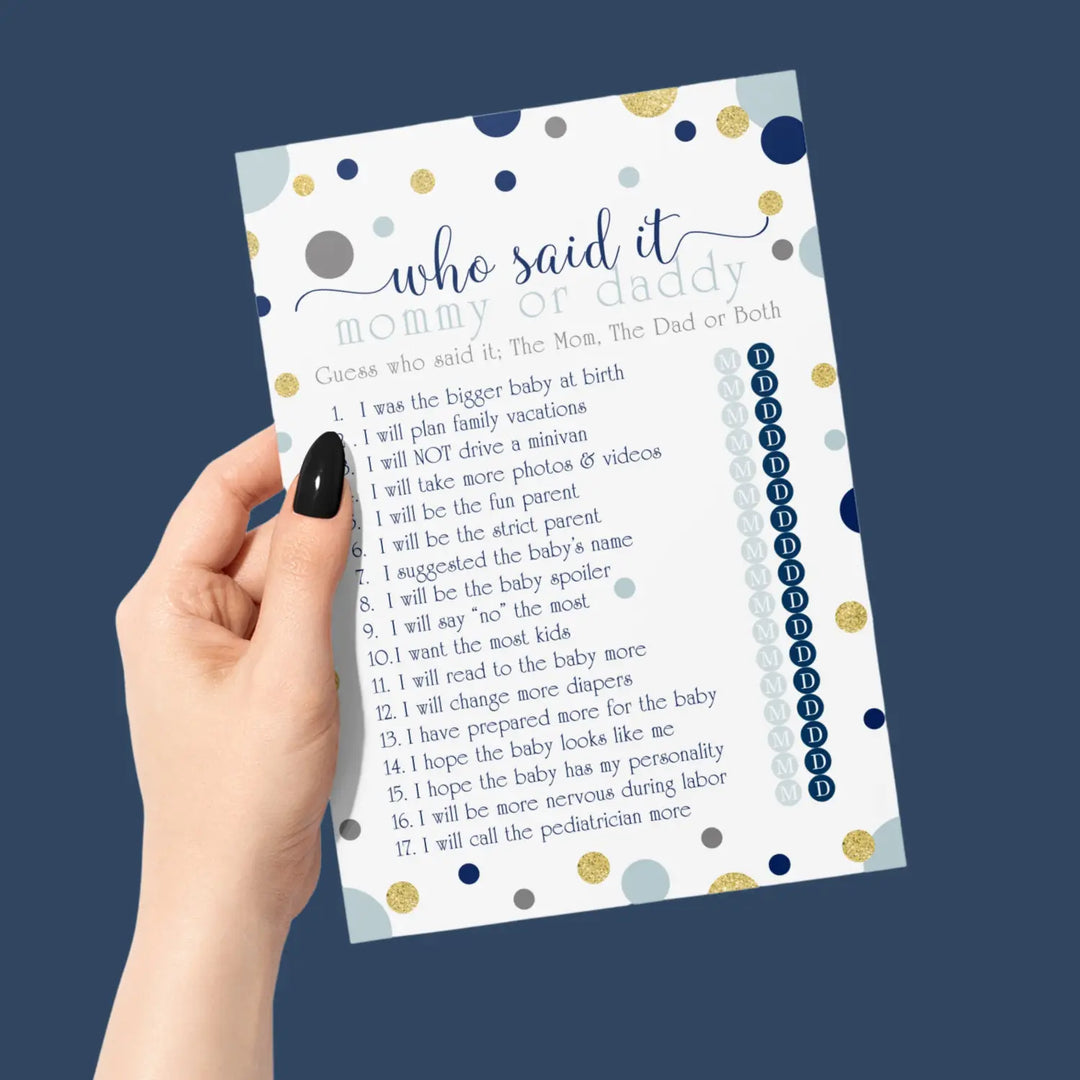 who said it
mommy or daddy
Guess who said it; The Mom, The Dad or Both
1. I was the bigger baby at birth M D
. I will plan family vacations M D
3. I will NOT drive a minivan M D
. I will take more photos & videos M D
5. I will be the fun parent M D
6. I will be the strict parent M D
7. I suggested the baby's name M D
8. I will be the baby spoiler M D
9. I will say "no" the most M D
10. I want the most kids M D
11. I will read to the baby more M D
12. I will change more diapers M D
13. I have prepared more for the baby M D
14. I hope the baby looks like me M D
15. I hope the baby has my personality M D
16. I will be more nervous during labor M D
17. I will call the pediatrician more M D